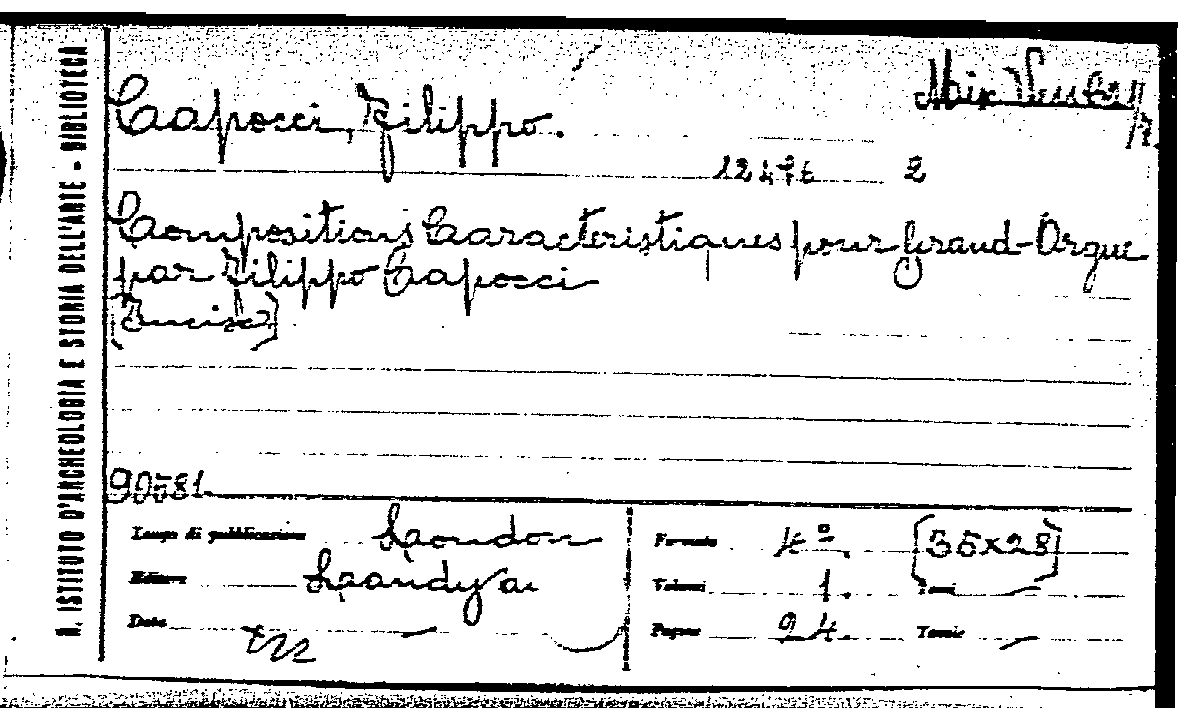 R. ISTITUTO D'ARCHEOLOGIA E STORIA DELL'ARTE - BIBLIOTECA
Capocci, Filippo.
Mix Vessella
12476 2
Compositions Caracteristiques pour Grand-Orgue
par Filippo Capocci
[Incisa]
90581
Luogo di pubblicazione London
Editore Laudy
Data
Formato 4º. [35x28]
Volumi 1. Tomi —
Pagine 94. Tavole —